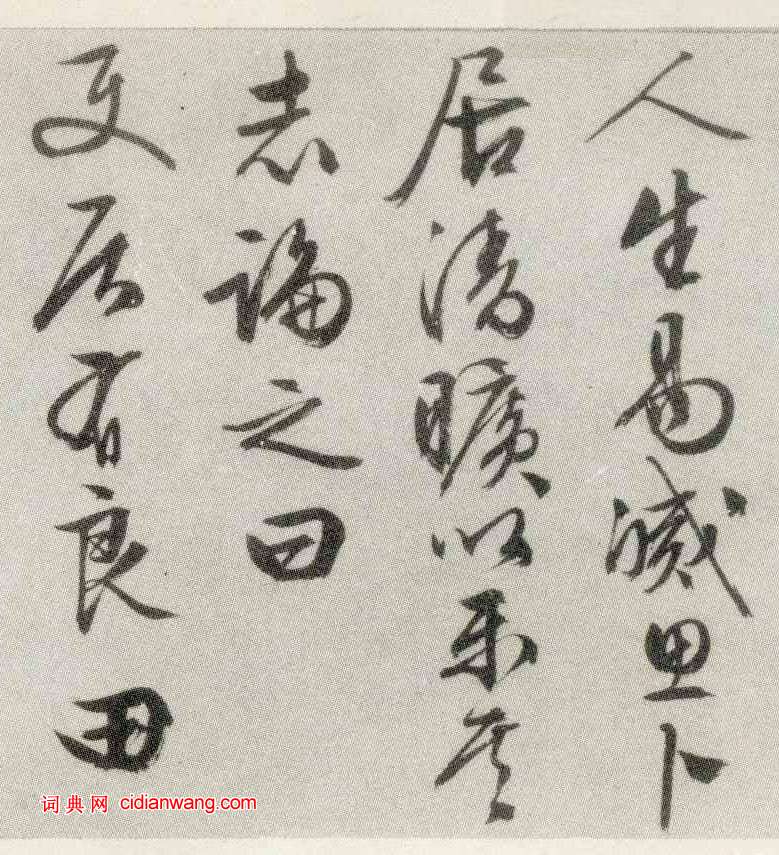 人生易滅思卜
居清曠以樂其
志論之曰
使居有良田
词典网 cidianwang.com